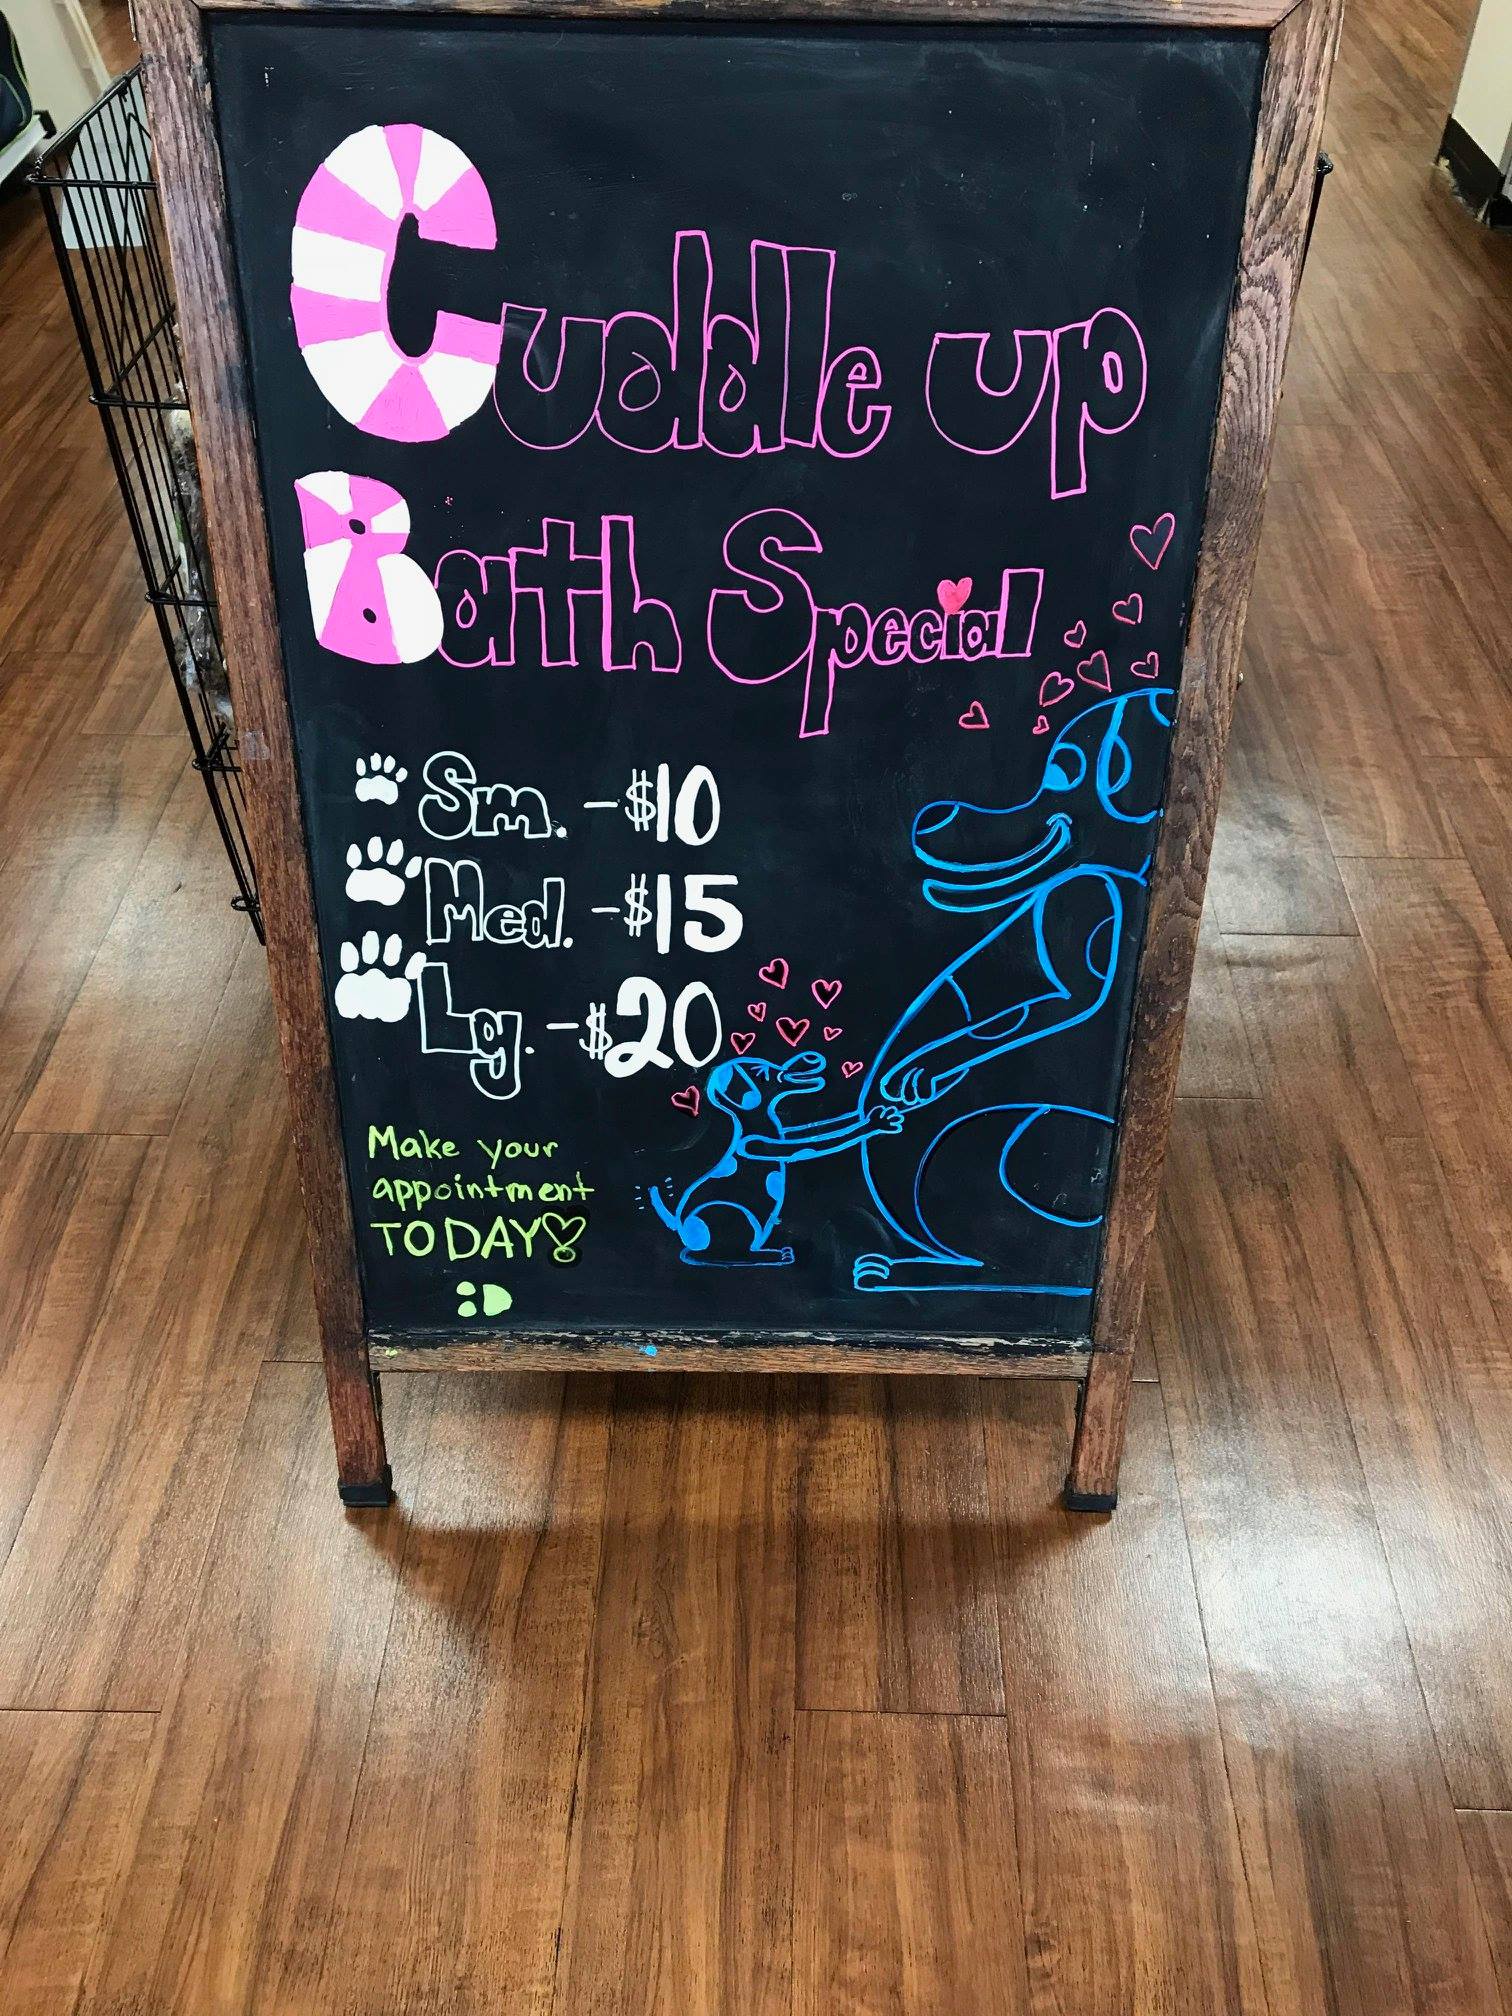 Cuddle up
Bath Special
Sm. - $10
Med. - $15
Lg. - $20
Make your
appointment
TODAY!
:D